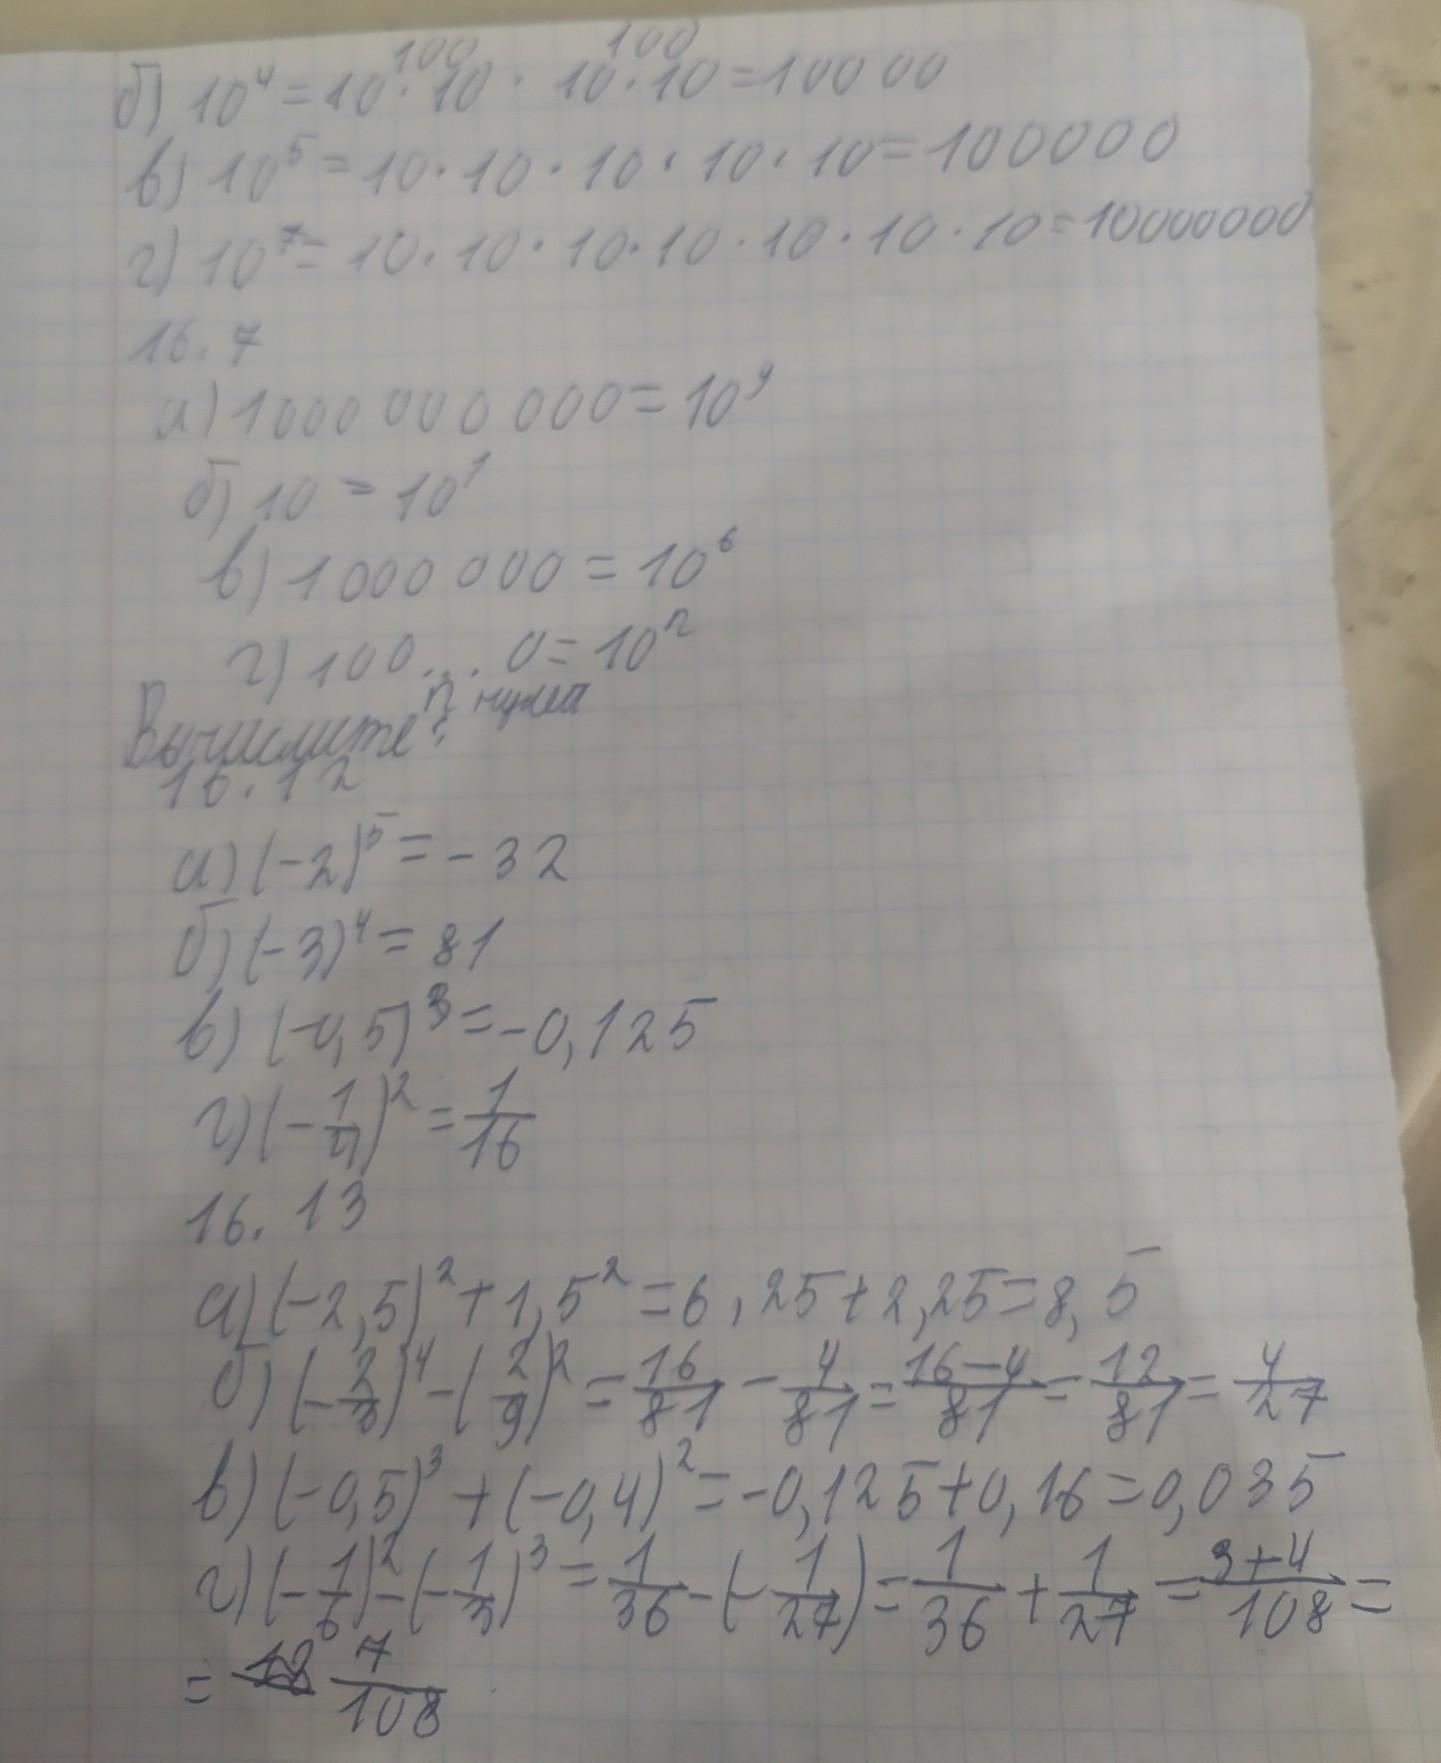 100 100
б) 10⁴ = 10 · 10 · 10 · 10 = 10000
в) 10⁵ = 10 · 10 · 10 · 10 · 10 = 100000
г) 10⁷ = 10 · 10 · 10 · 10 · 10 · 10 · 10 = 10000000
16.7
а) 1000 000 000 = 10⁹
б) 10 = 10¹
в) 1 000 000 = 10⁶
г) 100 ... 0 = 10ⁿ
n нулей
Вычислите:
16.12
а) (-2)⁵ = -32
б) (-3)⁴ = 81
в) (-0,5)³ = -0,125
г) (-1/4)² = 1/16
16.13
а) (-2,5)² + 1,5² = 6,25 + 2,25 = 8,5
б) (-2/3)⁴ - (2/9)² = 16/81 - 4/81 = (16-4)/81 = 12/81 = 4/27
в) (-0,5)³ + (-0,4)² = -0,125 + 0,16 = 0,035
г) (-1/6)² - (-1/3)³ = 1/36 - (-1/27) = 1/36 + 1/27 = (3+4)/108 =
= 7/108